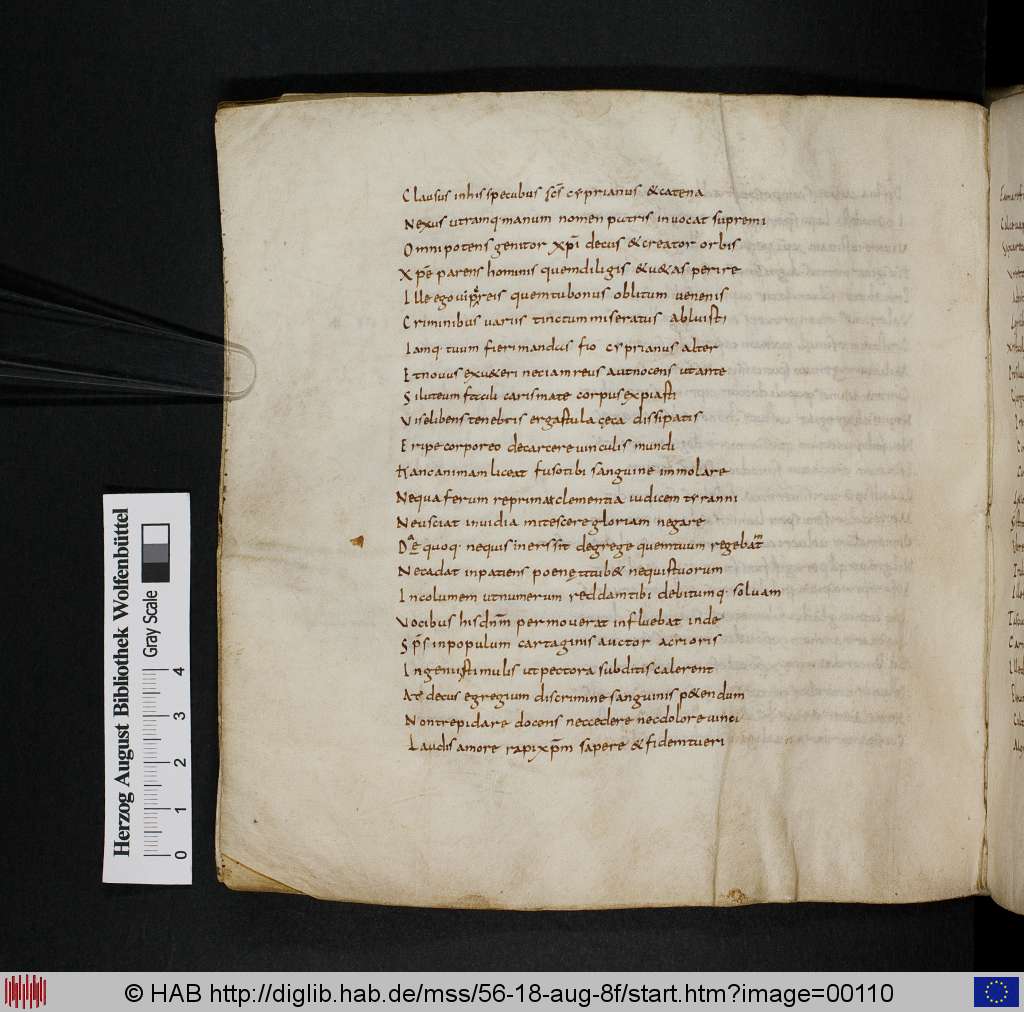 Clausus inhis specubus scs cyprianus & catena
Nexus utramq· manum nomen patris inuocat supremi
Omnipotens genitor xpi decus & creator orbis
Xpe parens hominis quemdiligis & u&as perire
Ille ego uipereis quemtubonus oblitum uenenis
Criminibus uariis tinctum miseratus abluisti
Iamq· tuum fierimandas fio cyprianus alter
Etnouus exu&eri neciamreus autnocens utante
Siluteum facili carismate corpusexpiasti
Uiselibens tenebris ergastula ceca dissipatis
Eripe corporeo decarcere uinculis mundi
Hancanimam liceat fusotibi sanguine immolare
Nequa ferum reprimat clementia iudicem tyranni
Neusciat inuidia mitescere gloriam negare
Da & quoq· nequis inerssit degrege quemtuum regebat
Necadat inpatiens poene titub& nequistuorum
Incolumem utnumerum reddamtibi debitumq· soluam
Uocibus hisdnm permouerat influebat inde
Sps inpopulum cartaginis auctor acrioris
Ingenii stimulis utpectora subditis calerent
At decus egregium discrimine sanguinis p&endum
Nontrepidare docens neccedere necdolore uinci
Laudis amore rapi xpm sapere & fidemtueri
Herzog August Bibliothek Wolfenbüttel
Gray Scale
0 1 2 3 4
© HAB http://diglib.hab.de/mss/56-18-aug-8f/start.htm?image=00110